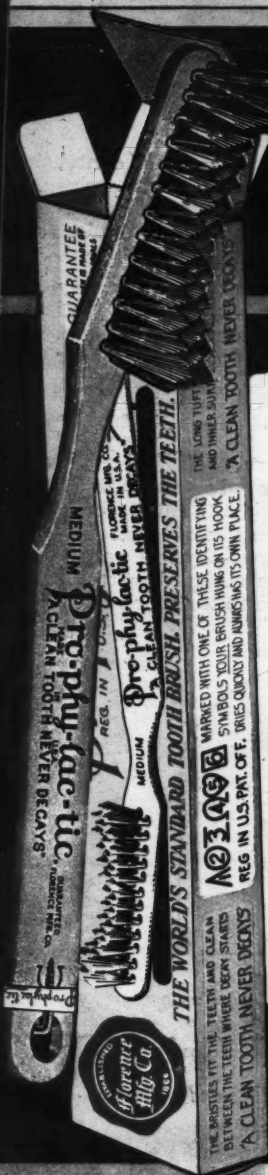 GUARANTEE
MEDIUM
Pro-phy-lac-tic
"A CLEAN TOOTH NEVER DECAYS"
GUARANTEED
FLORENCE MFG. CO.
Prophylactic
REG. IN U.S.
MEDIUM
Pro-phy-lac-tic
FLORENCE MFG. CO.
MADE IN U.S.A.
"A CLEAN TOOTH NEVER DECAYS"
THE WORLD'S STANDARD TOOTH BRUSH. PRESERVES THE TEETH.
ESTABLISHED
Florence
Mfg. Co.
1866
THE BRISTLES FIT THE TEETH AND CLEAN
BETWEEN THE TEETH WHERE DECAY STARTS
"A CLEAN TOOTH NEVER DECAYS"
MARKED WITH ONE OF THESE IDENTIFYING
SYMBOLS YOUR BRUSH HUNG ON ITS HOOK
REG IN U.S. PAT. OF F. DRIES QUICKLY AND ALWAYS HAS ITS OWN PLACE.
THE LONG TUFT
AND INNER
"A CLEAN TOOTH NEVER DECAYS"